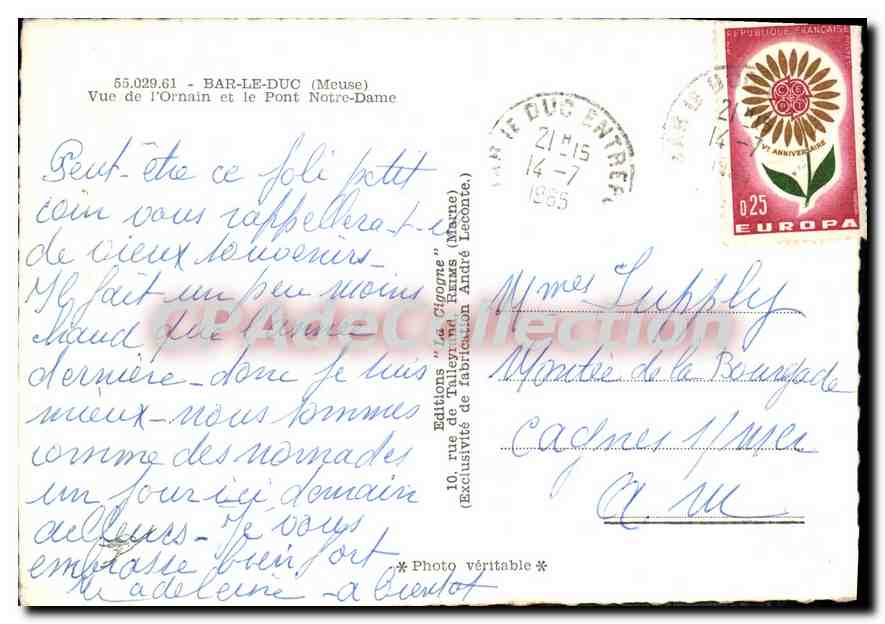 55.029.61 - BAR-LE-DUC (Meuse)
Vue de l'Ornain et le Pont Notre-Dame
Peut-être ce joli petit
coin vous rappellera-t-il
de vieux souvenirs-
Il fait un peu moins
chaud que l'année
dernière - donc je suis
mieux - nous sommes
comme des nomades
un jour ici demain
ailleurs - Je vous
embrasse bien fort
Madeleine - a bientot
Editions "La Cigogne"
10, rue de Talleyrand, REIMS (Marne)
(Exclusivité de fabrication André Leconte.)
* Photo véritable *
BAR LE DUC ENTREP
21H15
14-7
1965
BAR LE D
21
14-7
REPUBLIQUE FRANÇAISE
POSTES
CEPT
Ve ANNIVERSAIRE
0.25
EUROPA
Mmes Supply
Montée de la Bourgade
Cagnes s/mer
A M
CPAdeCollection.com